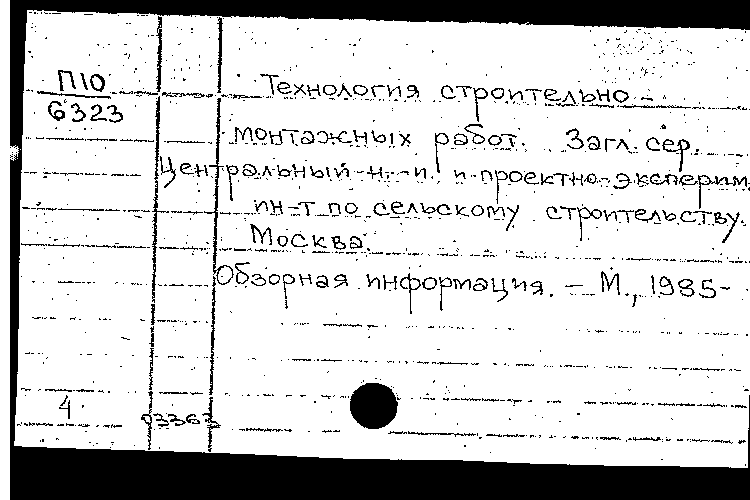 П10
6323
Технология строительно-
монтажных работ. Загл. сер.
Центральный н.-и. и проектно-эксперим.
ин-т по сельскому строительству.
Москва.
Обзорная информация. – М., 1985-
4
03363